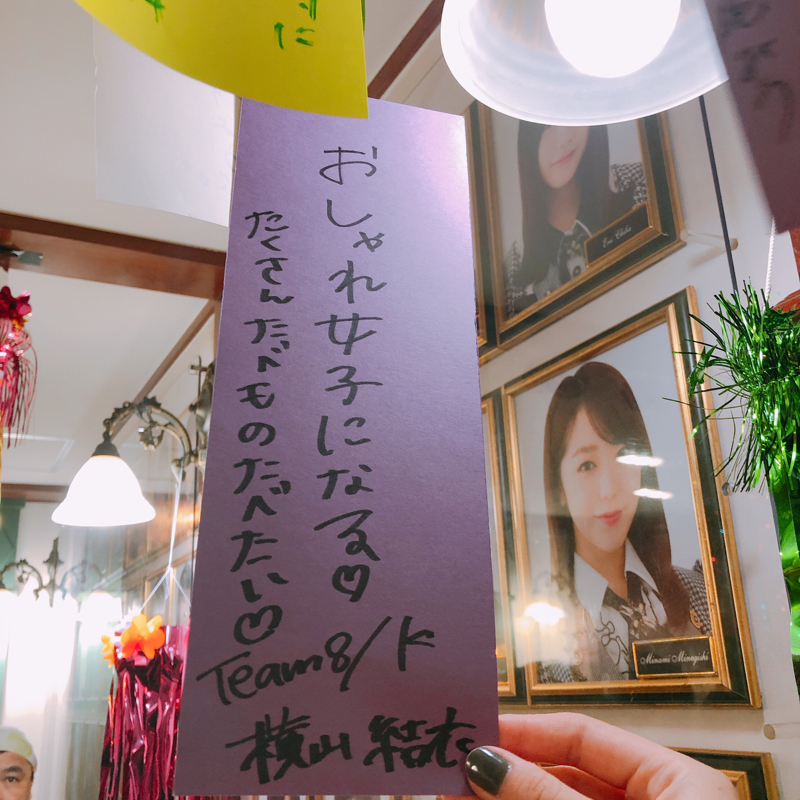 おしゃれ女子になる♡
たくさんたべものたべたい♡
Team8/K
横山結衣
に
Minami Minegishi